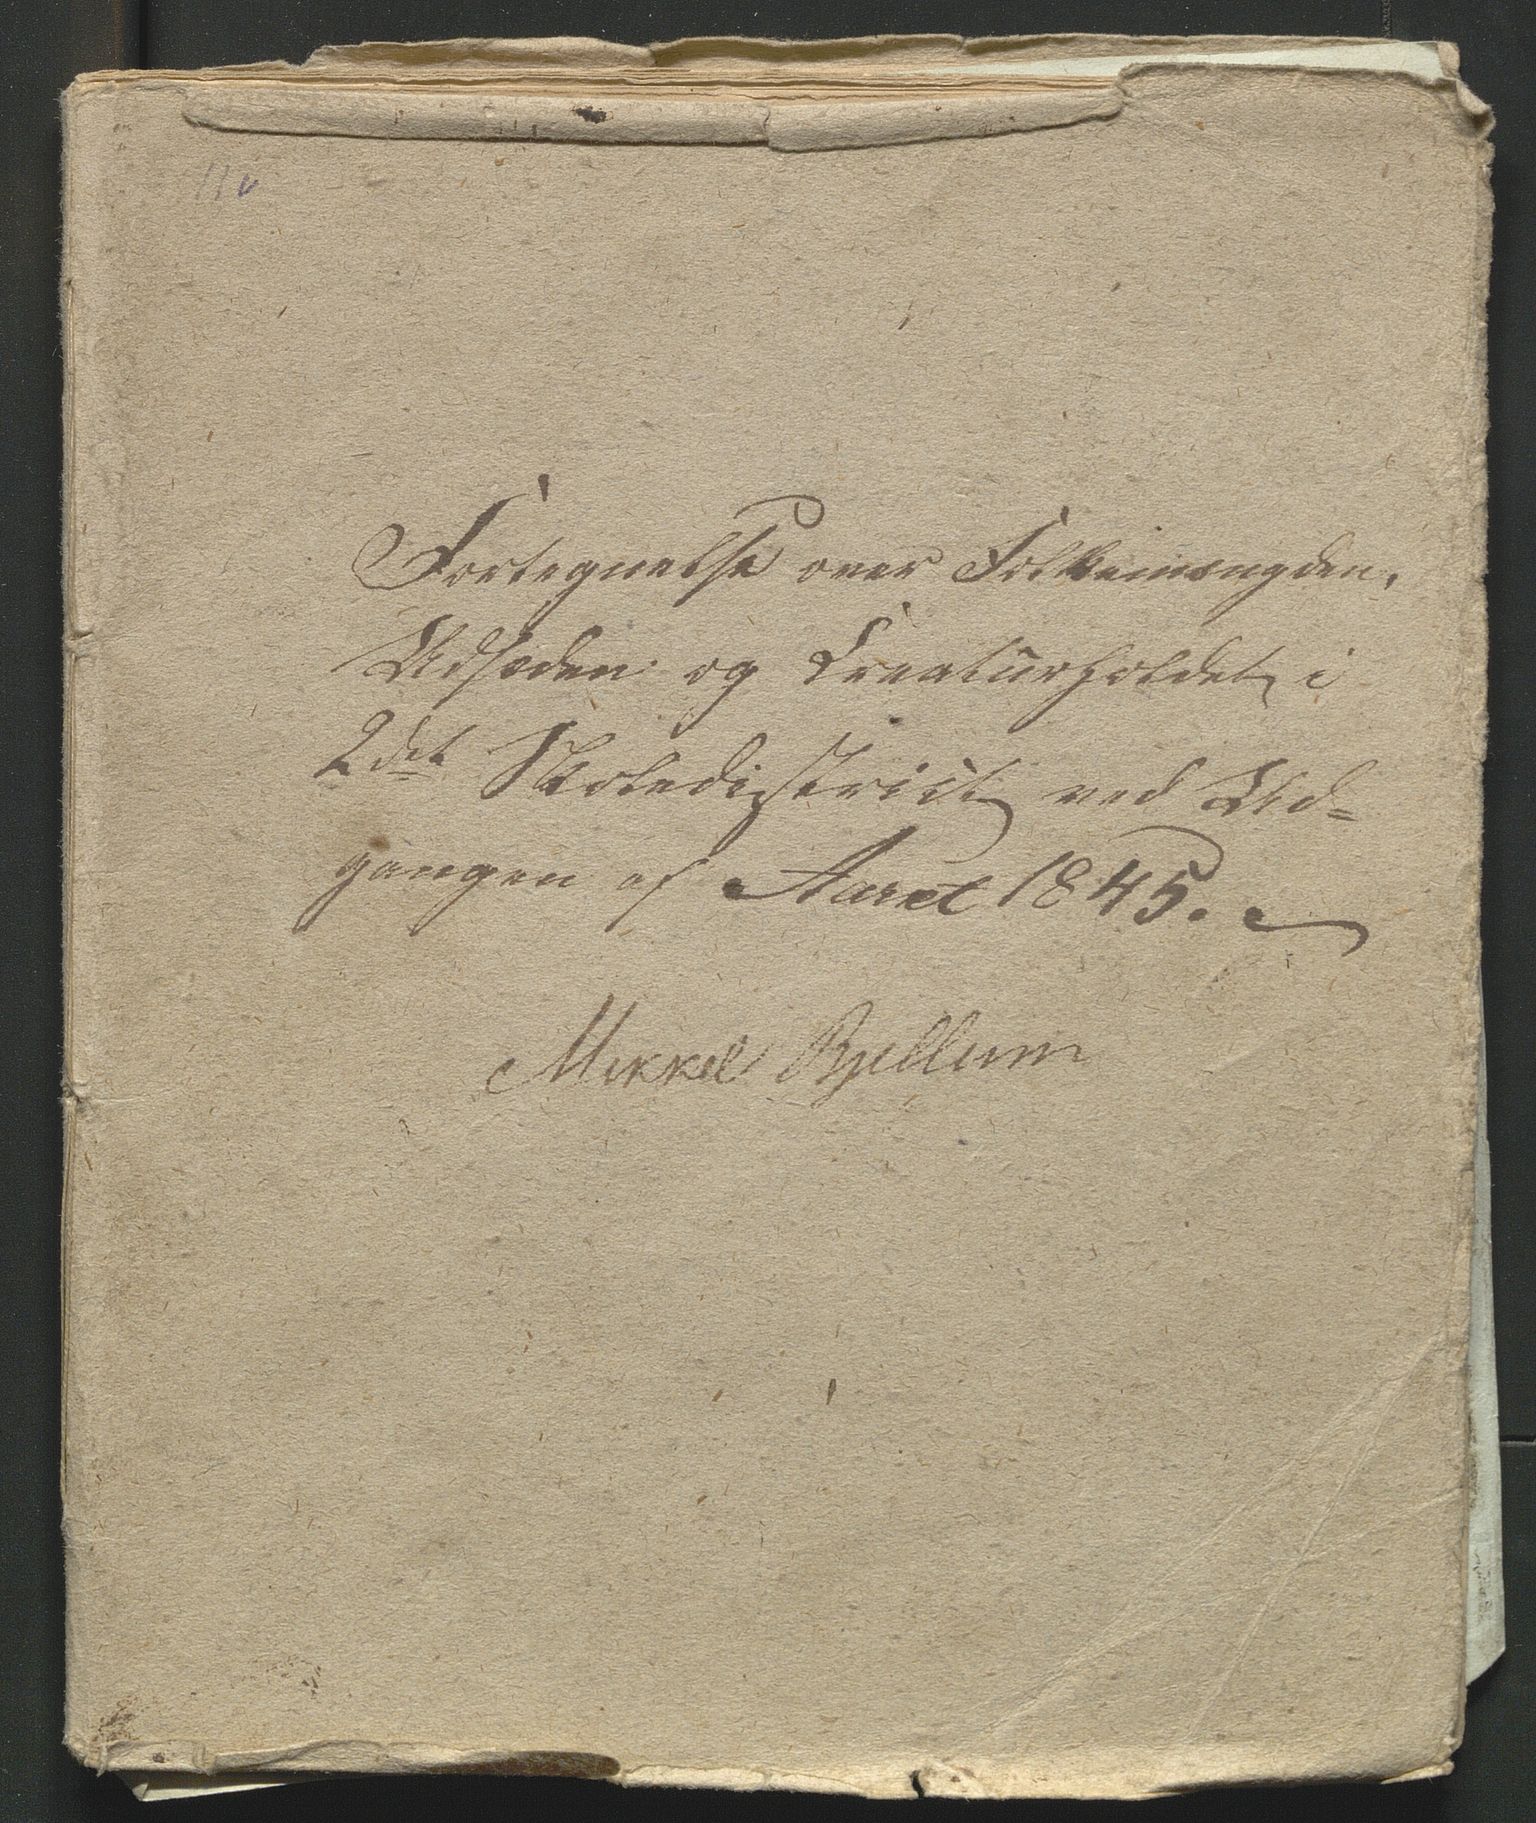 Fortegnelse over Folkemængden,
Udsæden og Creaturholdet i
2det Skoledistrict ved Ud=
gangen af Aaret 1845.
Mikkel Bjellum